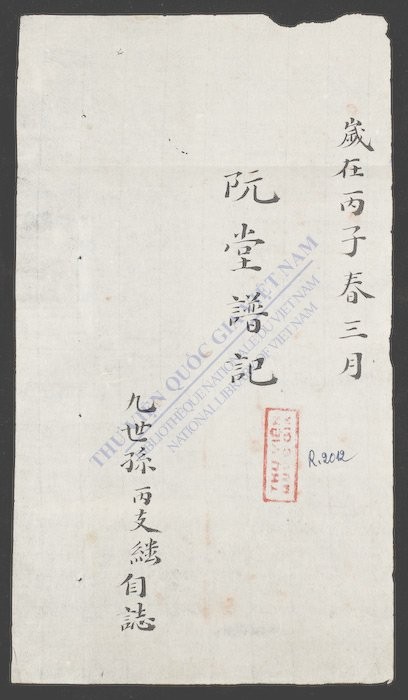 歲在丙子春三月
阮堂譜記
九世孫丙支繼自誌
THƯ VIỆN QUỐC GIA VIỆT NAM
BIBLIOTHÈQUE NATIONALE DU VIETNAM
NATIONAL LIBRARY OF VIETNAM
THU VIÊN
QUỐC GIA
R.2012